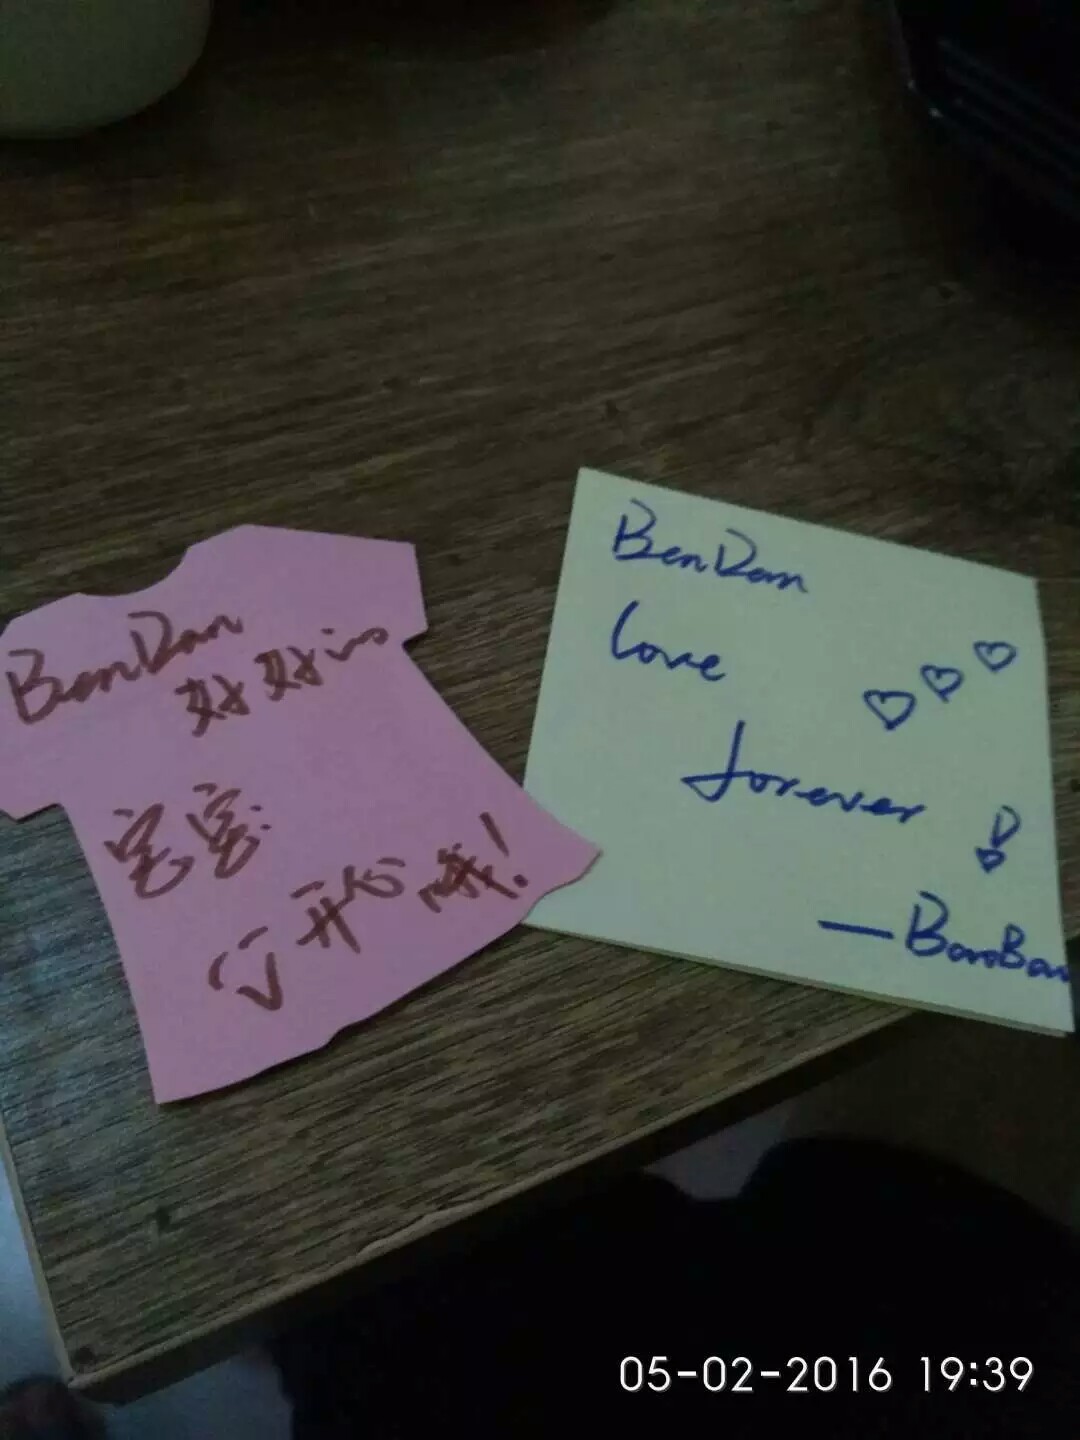 BenDan
好好
宝宝
开心哦!
BenDan
love
forever!
—BaoBao
05-02-2016 19:39